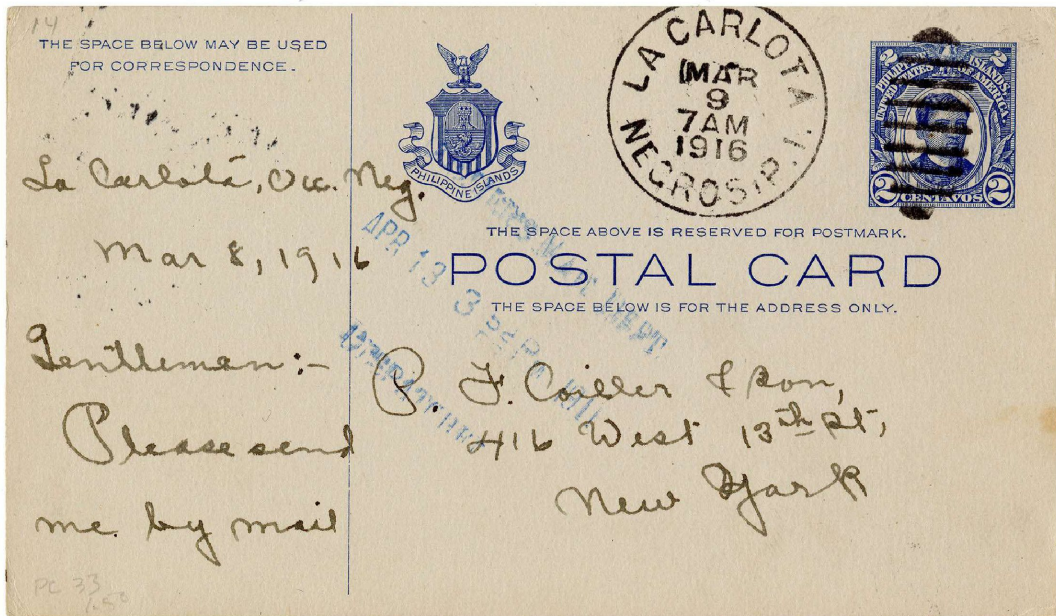 14
THE SPACE BELOW MAY BE USED
FOR CORRESPONDENCE.
La Carlota, Occ. Neg.
Mar 8, 1916
Gentleman:-
Please send
me by mail
PC 33
1.50
PHILIPPINE ISLANDS
LA CARLOTA
MAR
9
7AM
1916
NEGROS, P.I.
2 2
PHILIPPINE ISLANDS.
UNITED STATES OF AMERICA.
2 CENTAVOS 2
THE SPACE ABOVE IS RESERVED FOR POSTMARK.
POSTAL CARD
THE SPACE BELOW IS FOR THE ADDRESS ONLY.
APR 13 3 PM 1916
P. F. Coiller & Son,
416 West 13th St,
New York